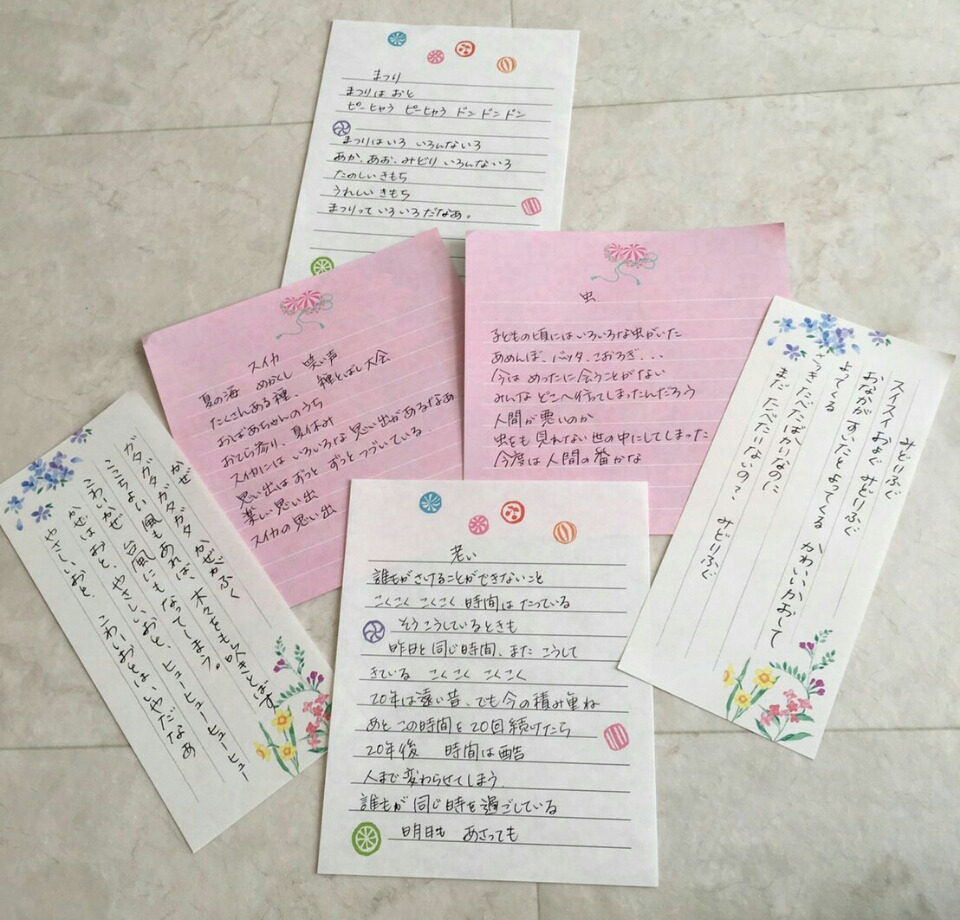 まつり
まつりは おと
ピーヒャラ ピーヒャラ ドン ドン ドン
まつりはいろ いろんないろ
あか、あお、みどり いろんないろ
たのしいきもち
うれしいきもち
まつりって いろいろだなあ。
スイカ
夏の海 めかくし 笑い声
たくさんある種、 種とばし大会
おばあちゃんのうち
おてら参り、夏休み
スイカには いろいろな 思い出があるなあ
思い出は ずっと ずっと つづいている
楽しい思い出
スイカの思い出
虫
子どもの頃にはいろいろな虫がいた
あめんぼ、バッタ、こおろぎ、、、
今は めったに会うことがない
みんな どこへ行ってしまったんだろう
人間が悪いのか
虫をも 見れない世の中にしてしまった
今度は 人間の番かな
みどりふぐ
スイスイ およぐ みどりふぐ
おなかが すいたと よってくる かわいいかおして
よってくる
さっき たべたばかりなのに
まだ たべたりないの？ みどりふぐ
かぜ
ガタガタガタガタ かぜがふく
ここちよい 風もあれば、木々をも ふきとばす
台風にもなってしまう。
こわいかぜ ヒューヒュー ヒューヒュー
かぜはおと、やさしいおと、
やさしいおと、 こわーいおとは いやだなあ
老い
誰もがさけることができないこと
こくこく こくこく 時間は たっている
そうこうしているときも
昨日と同じ時間、また こうして
きている こくこく こくこく
20年は遠い昔、でも今の積み重ね
あと この時間を20回続けたら
20年後 時間は酷
人まで変わらせてしまう
誰もが 同じ時を過ごしている
明日も あさっても